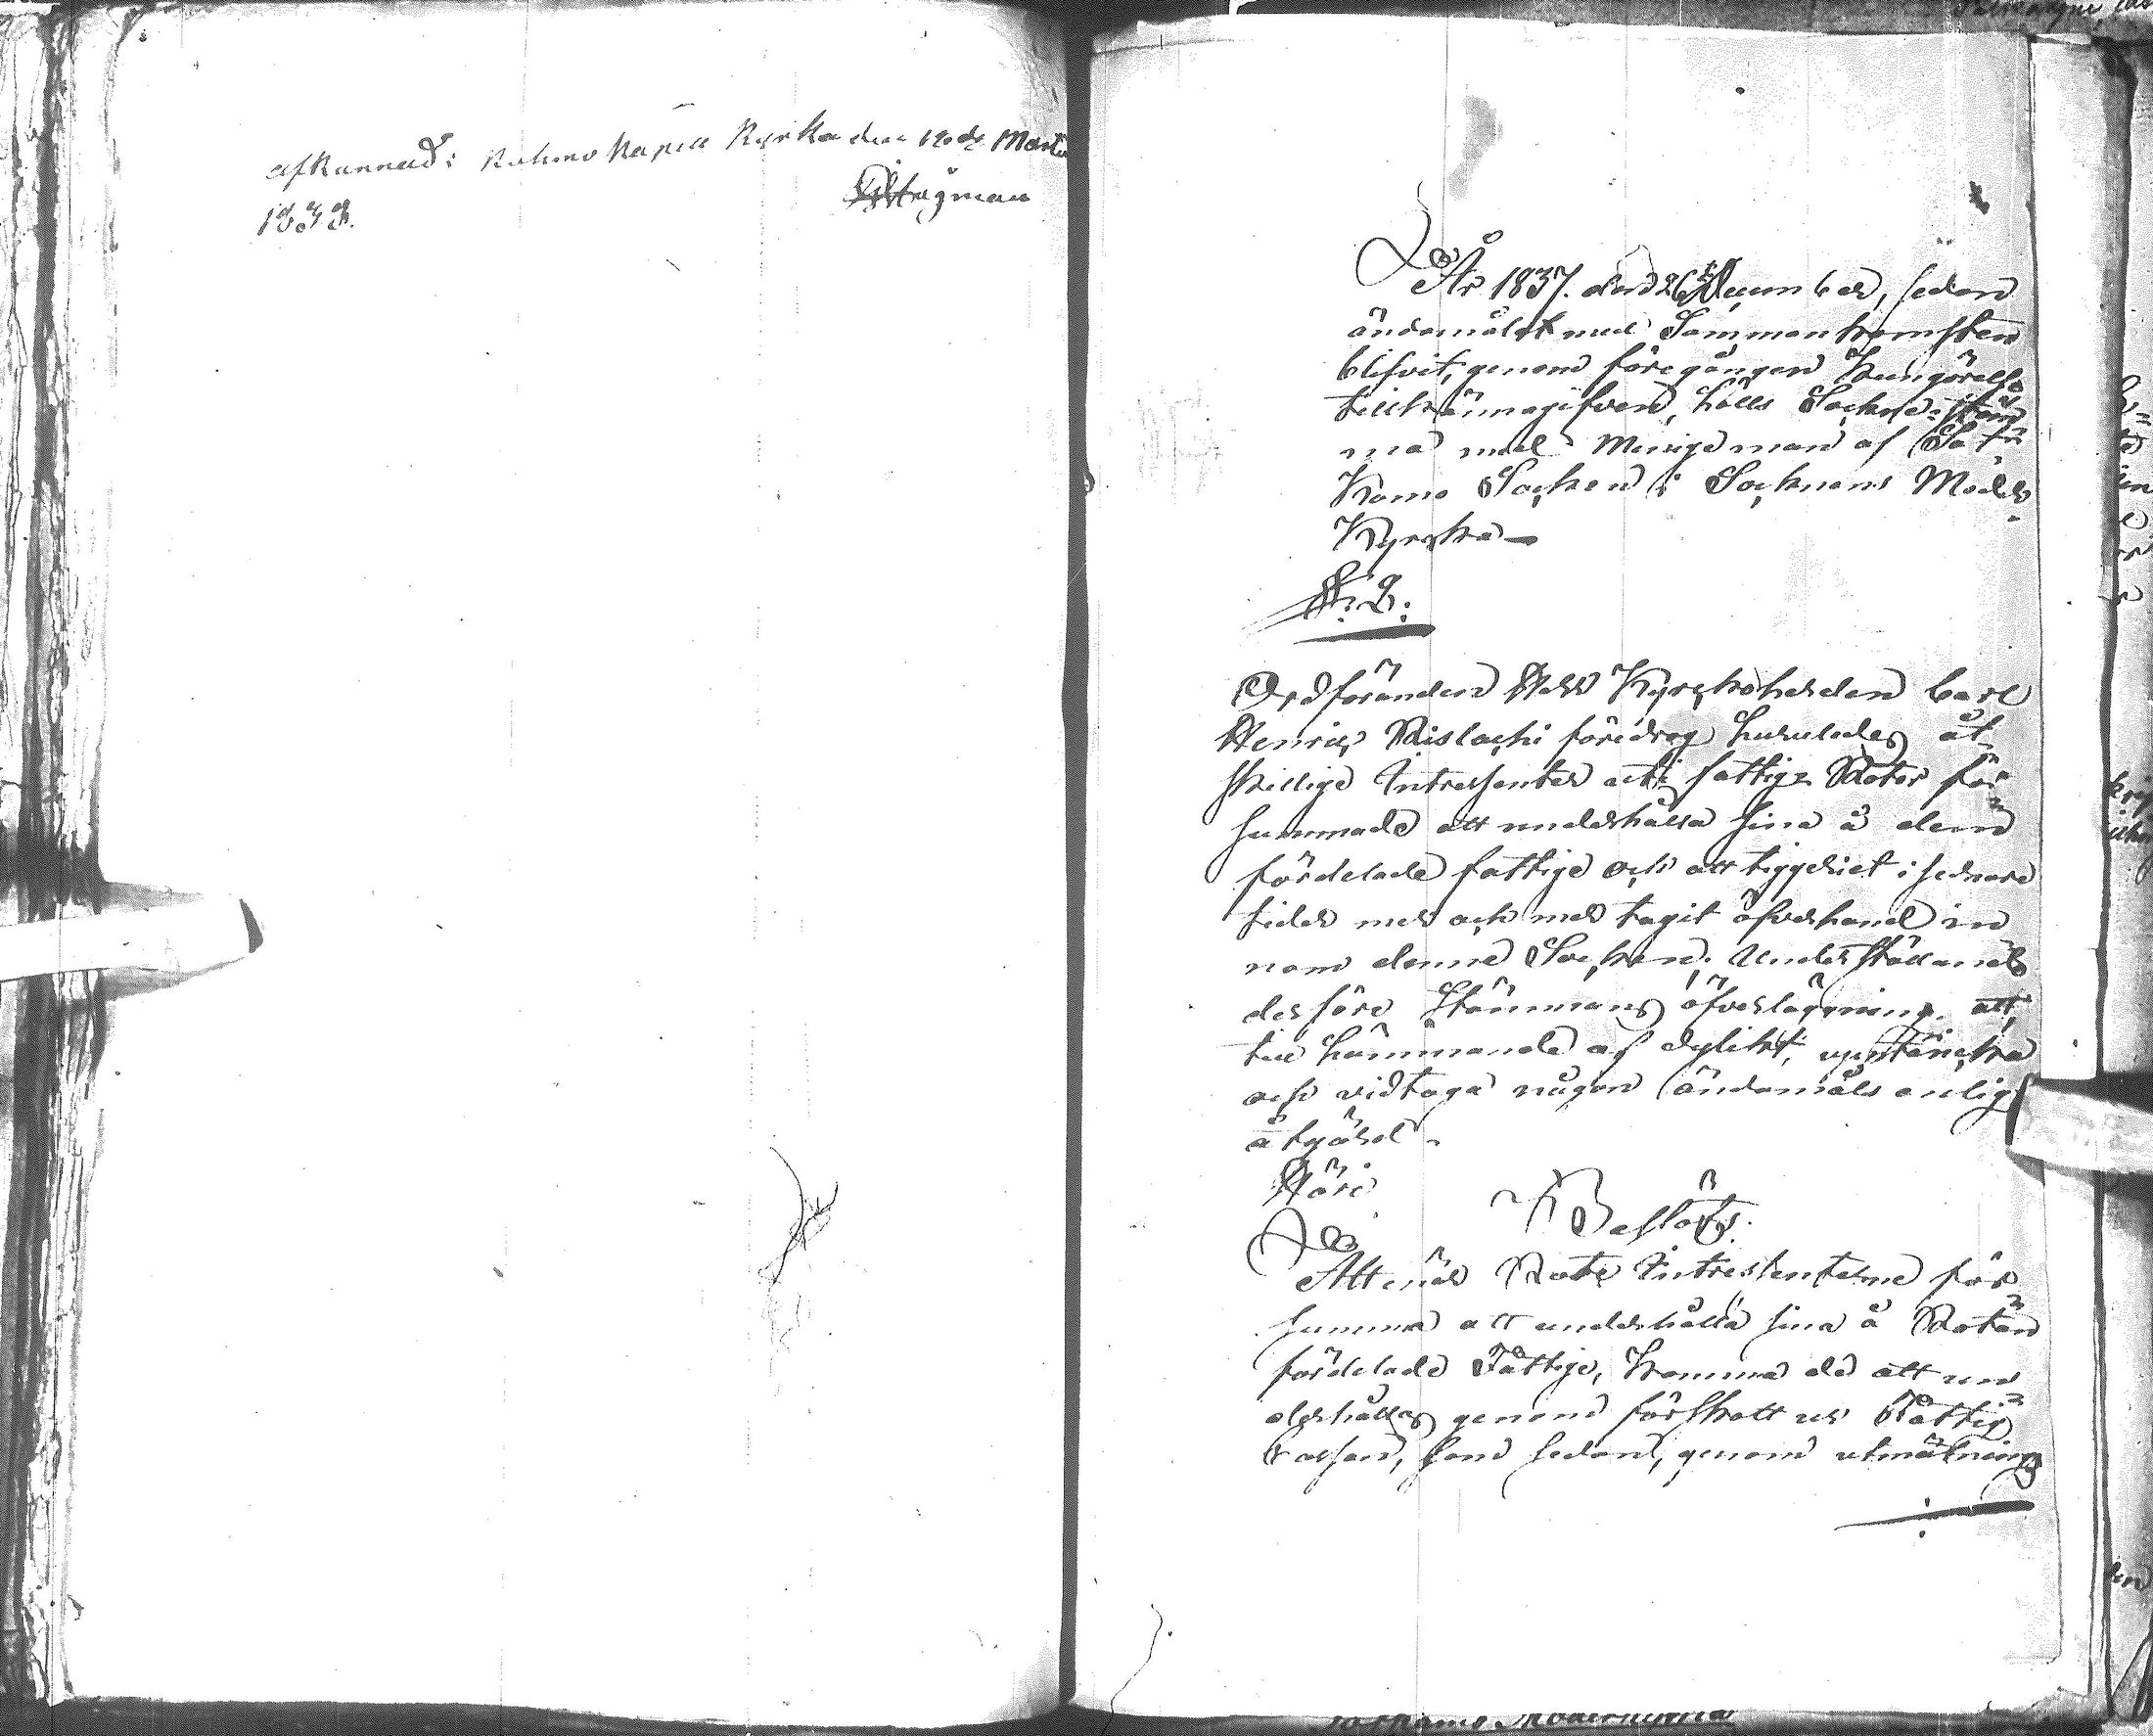 afkunnad i Kuhmo Kapell Kyrka den
1838.
År 1837. den 26 December, sedan
ändamålet med Sammankomsten
blifvit, genom föregången Kungörelse
tillkännagifven, hölls Sockne-stäm
ma med Menige man af Sot-
kamo Socken i Socknens Moder
Kyrcka —
§. 2.
Ordföranden Herr Kyrckoherden Carl
Henric Rislachi föredrog huruledes åt
skillige Intressenter uti fattig Rotor för
summade att underhålla sina å dem
fördelade fattige och att tiggeriet i sednare
tider mer och mer tagit öfverhand in
nom denna Socken; Underställandes
derföre Stämmans öfverläggning, att,
till hämmande af dylikt, upptäncka
och vidtaga någon ändamåls enlig
åtgärd.
Häri
Beslöts:
Att när Rote Intressenterne för
summa att underhålla sina å Rotan
fördelade Fattige, komma de att un
derhållas genom förskott ur Fattig
Cassan, som sedan, genom utmätning